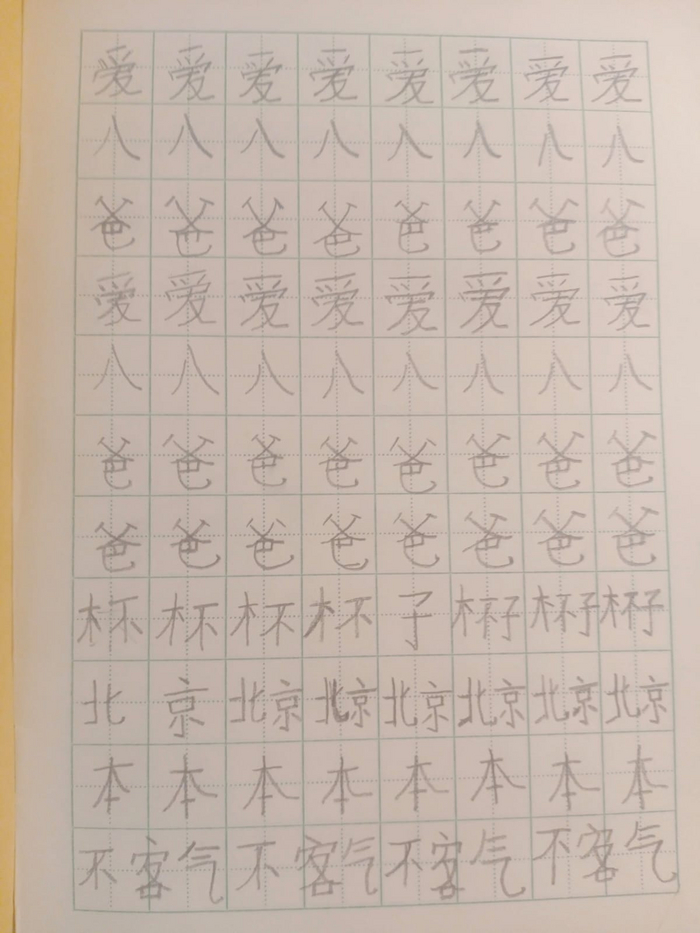 爱 爱 爱 爱 爱 爱 爱 爱
八 八 八 八 八 八 八 八
爸 爸 爸 爸 爸 爸 爸 爸
爱 爱 爱 爱 爱 爱 爱 爱
八 八 八 八 八 八 八 八
爸 爸 爸 爸 爸 爸 爸 爸
爸 爸 爸 爸 爸 爸 爸 爸
杯 杯 杯 杯 子 杯子 杯子 杯子
北 京 北京 北京 北京 北京 北京 北京
本 本 本 本 本 本 本 本
不客气 不客气 不客气 不客气